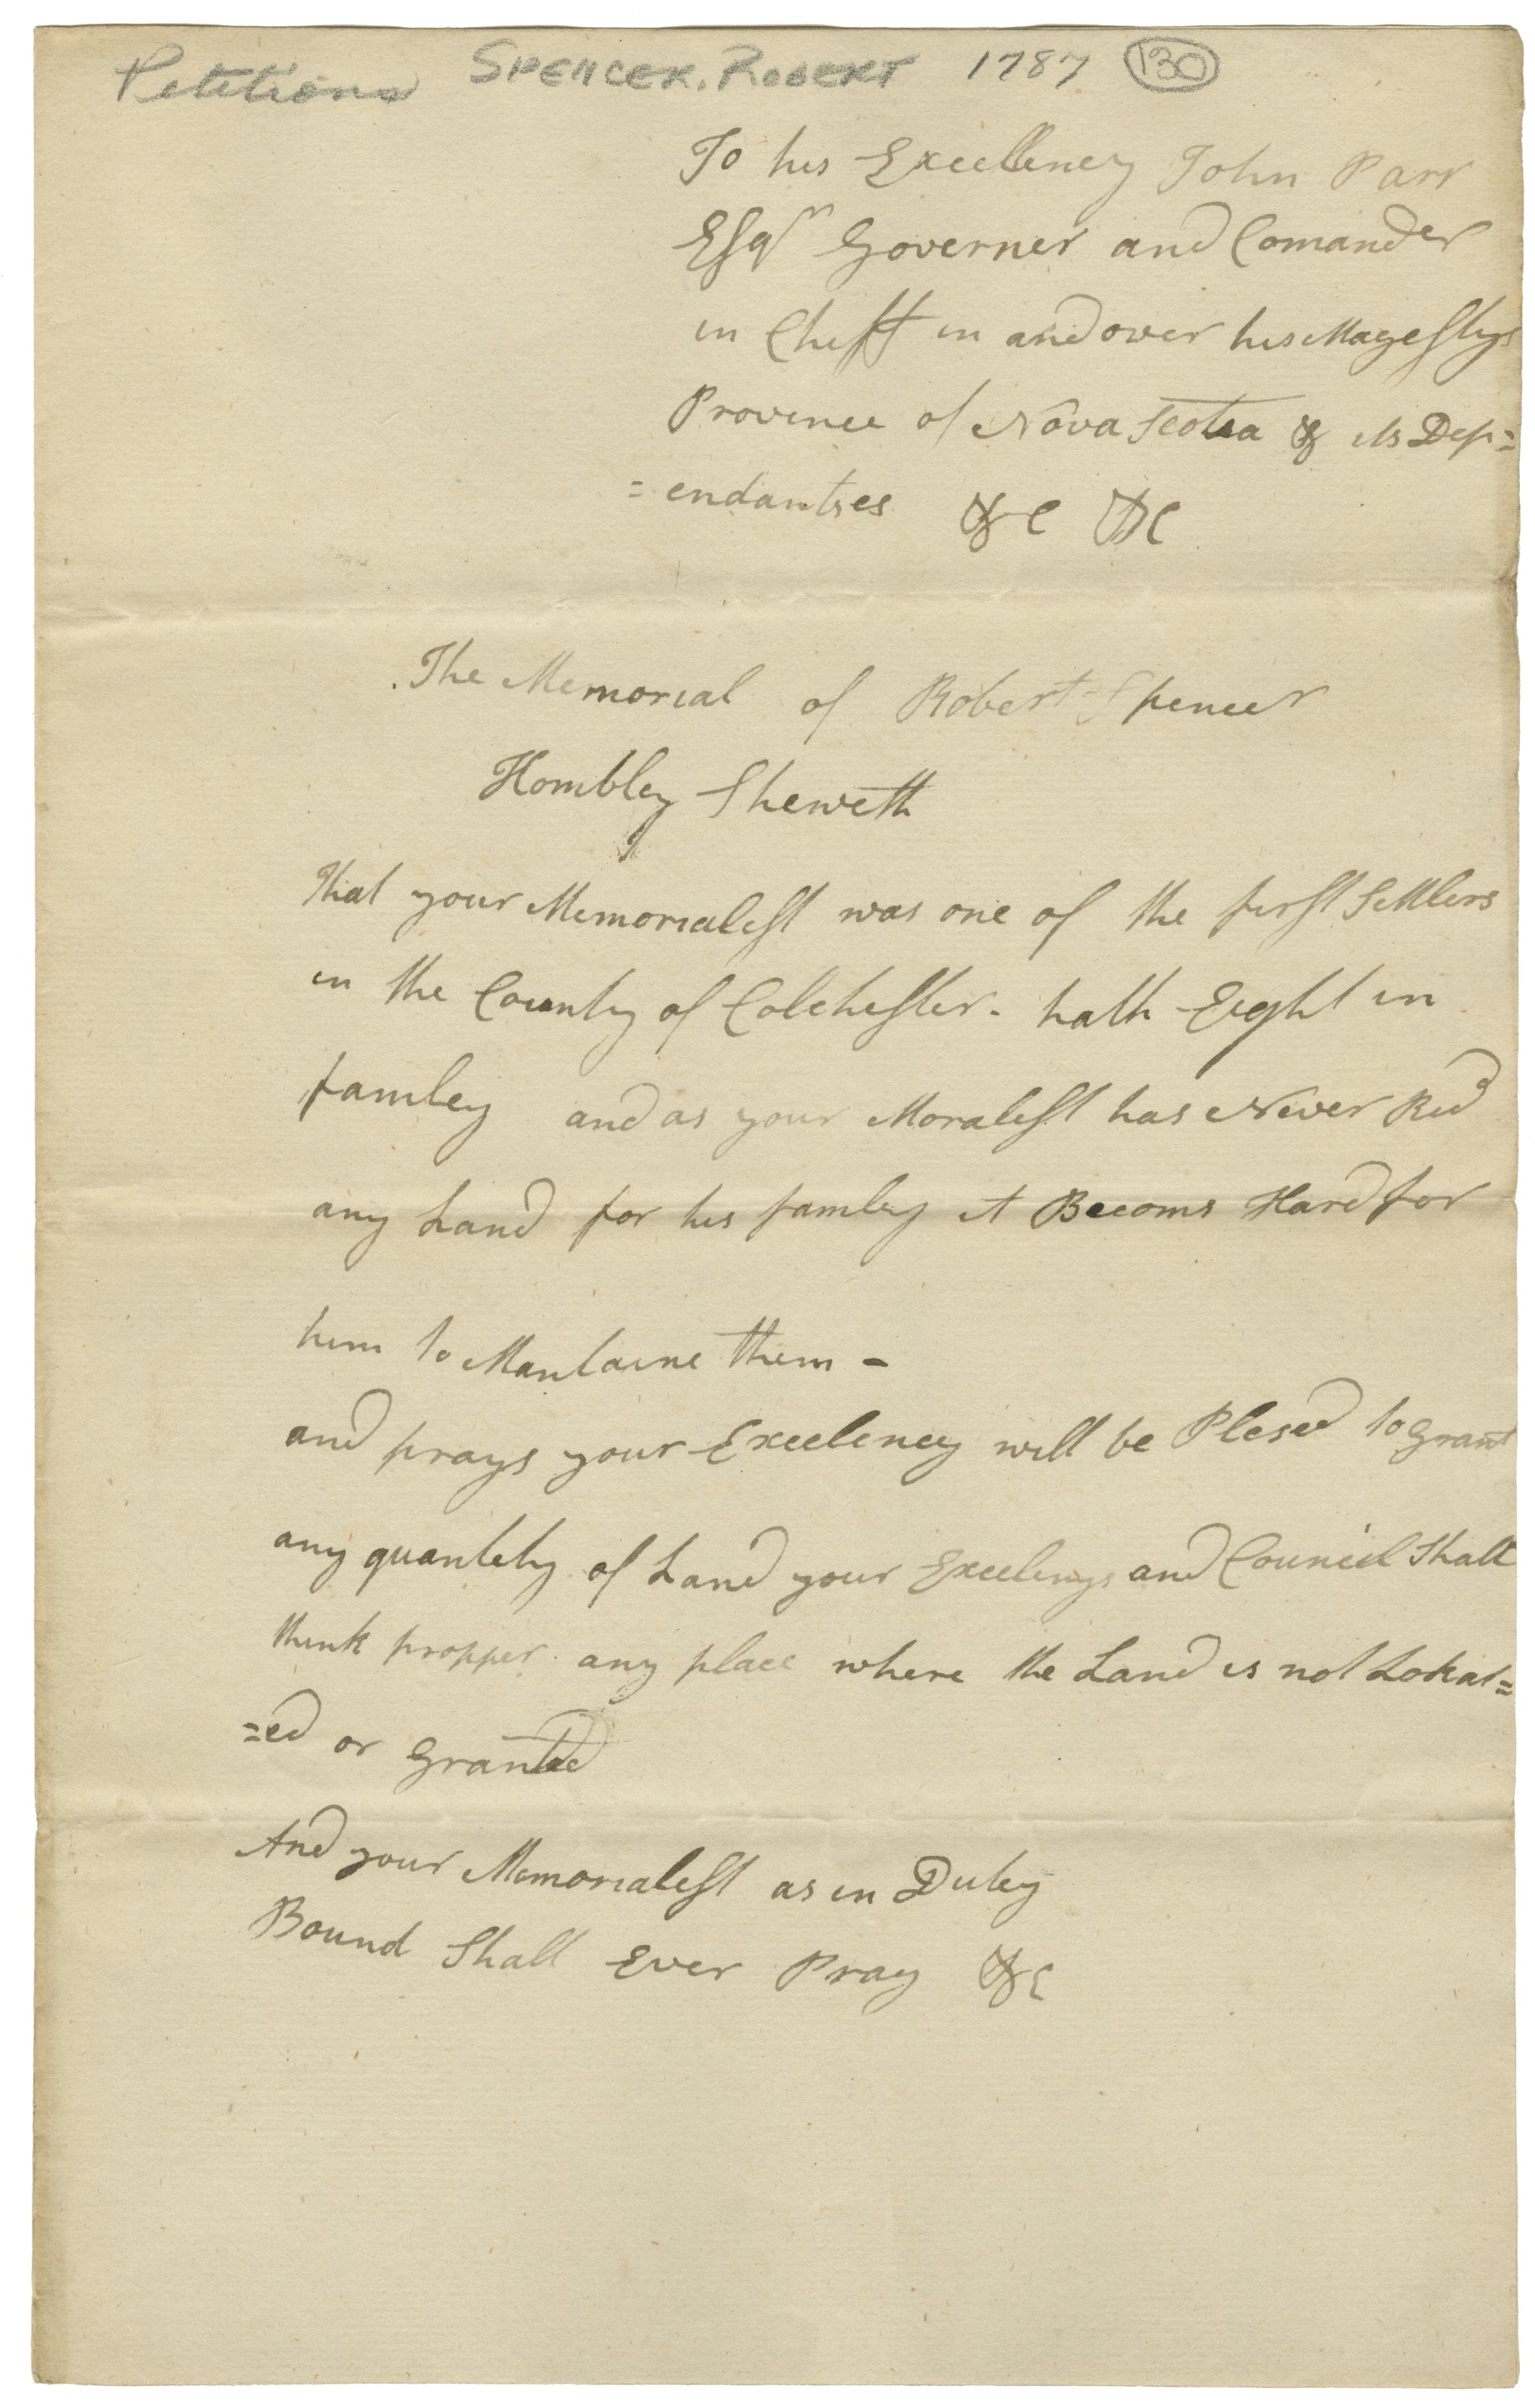 Petitions SPENCER, ROBERT 1787 130
To his Excellency John Parr
Esqr Governer and Comander
in Cheff in and over his Magestys
Province of Nova Scotia & its Dep=
=endantses &c &c
The Memorial of Robert Spencer
Hombley Sheweth
That your Memorialest was one of the first Settlers
in the County of Colchester. hath Eight in
famley and as your Moralest has Never Red
any Land for his famley it Becoms Hard for
him to Mantaine them -
and prays your Excelency will be Plesed to grant
any quantety of Land your Excelencys and Council Shall
think propper any place where the Land is not Lokat=
=ed or granted
And your Memorialest as in Dutey
Bound Shall Ever Pray &c